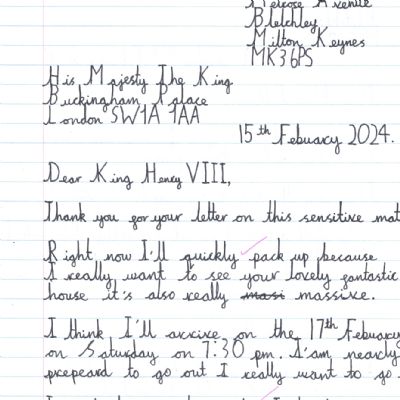 Avenue
Bletchley
Milton Keynes
MK3 6PS
His Majesty The King
Buckingham Palace
London SW1A 1AA
15th Febuary 2024.
Dear King Henry VIII,
Thank you for your letter on this sensitive mat
Right now I'll quickly pack up because
I really want to see your lovely fantastic
house it's also really masi massive.
I think I'll arrive on the 17th Febuary
on Saturday on 7:30 pm. I'am nearly
prepeard to go out I really want to go.